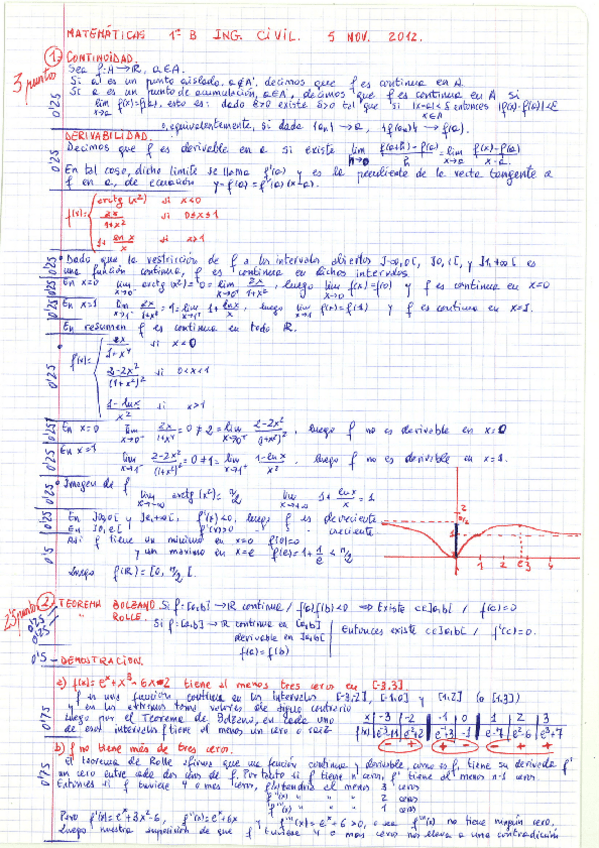 MATEMÁTICAS 1º B ING. CIVIL. 5 NOV. 2012.
3 puntos
1. CONTINUIDAD.
Sea f: A → R, a∈A.
Si a es un punto aislado, a∉A', decimos que f es continua en A.
Si a es un punto de acumulación, a∈A', decimos que f es continua en A si
lim x→a f(x)=f(a), esto es: dado ε>0 existe δ>0 tal que si |x-a|<δ x∈A entonces |f(x)-f(a)|<ε
0'25
o, equivalentemente, si dada {an} → a, {f(an)} → f(a).
DERIVABILIDAD.
0'25
Decimos que f es derivable en a si existe lim h→0 (f(a+h)-f(a))/h = lim x→a (f(x)-f(a))/(x-a).
En tal caso, dicho limite se llama f'(a) y es la pendiente de la recta tangente a
f en a, de ecuación y-f(a)=f'(a)(x-a).
f(x)= { arctg(x²) si x<0
2x/(1+x²) si 0≤x≤1
1+ ln x/x si x>1
Dado que la restricción de f a los intervalos abiertos ]-∞,0[, ]0,1[, y ]1,+∞[ es
una función continua, f es continua en dichos intervalos.
0'25 0'25 0'25
En x=0 lim x→0⁻ arctg(x²)=0= lim x→0⁺ 2x/(1+x²), luego lim x→0 f(x)=f(0) y f es continua en x=0
En x=1 lim x→1⁻ 2x/(1+x²)=1= lim x→1⁺ 1+ ln x/x, luego lim x→1 f(x)=f(1) y f es continua en x=1.
En resumen f es continua en todo R.
0'25
f'(x)= { 2x/(1+x⁴) si x<0
(2-2x²)/(1+x²)² si 0<x<1
(1-ln x)/x² si x>1
En x=0 lim x→0⁻ 2x/(1+x⁴)=0≠2= lim x→0⁺ (2-2x²)/(1+x²)², luego f no es derivable en x=0
En x=1 lim x→1⁻ (2-2x²)/(1+x²)²=0≠1= lim x→1⁺ (1-ln x)/x², luego f no es derivable en x=1.
Imagen de f lim x→-∞ arctg(x²)=π/2 lim x→+∞ 1+ ln x/x = 1
En ]-∞,0[ y ]e,+∞[, f'(x)<0, luego f es decreciente
En ]0,e[ f'(x)>0 " " creciente
0'5
Así f tiene un mínimo en x=0 f(0)=0
y un máximo en x=e f(e)=1+1/e < π/2
Luego f(R)=[0, π/2[.
1 2 e 3 4
2. TEOREMA BOLZANO Si f:[a,b]→R continua / f(a)f(b)<0 ⇒ Existe c∈]a,b[ / f(c)=0
" ROLLE. Si f:[a,b]→R continua en [a,b]
derivable en ]a,b[
f(a)=f(b)
Entonces existe c∈]a,b[ / f'(c)=0.
0'5 - DEMOSTRACION.
a) f(x)=e^x+x³-6x-2 tiene al menos tres ceros en [-3,3]
f es una función continua en los intervalos [-3,-2], [-1,0] y [1,2] (o [1,3])
y en los extremos toma valores de signo contrario
0'75
Luego por el Teorema de Bolzano, en cada uno
de esos intervalos f tiene al menos un cero o raíz
x | -3 | -2 | -1 | 0 | 1 | 2 | 3
b) f no tiene más de tres ceros.
0'75
El teorema de Rolle afirma que una función continua y derivable, como es f, tiene su derivada f'
un cero entre cada dos ceros de f. Por tanto si f tiene n ceros, f' tiene al menos n-1 ceros.
Entonces si f tuviese 4 o mas ceros, f' tendría al menos 3 ceros
f''(x) " " " 2 ceros
f'''(x) " " " 1 cero
Pero f'(x)=e^x+3x²-6, f''(x)=e^x+6x y f'''(x)=e^x+6>0, o sea f'''(x) no tiene ningún cero.
Luego nuestra suposición de que f tuviese 4 o mas ceros nos lleva a una contradicción